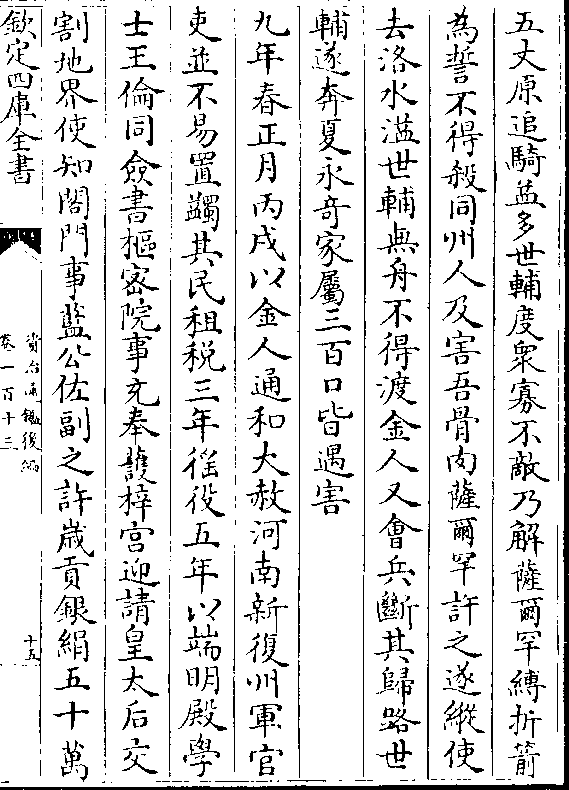 五丈原追騎益多世輔度衆寡不敵乃解薩爾罕縛折箭
為誓不得殺同州人及害吾骨肉薩爾罕許之遂縱使
去洛水溢世輔無舟不得渡金人又會兵斷其歸路世
輔遂奔夏永奇家屬三百口皆遇害
九年春正月丙戌以金人通和大赦河南新復州軍官
吏並不易置蠲其民租稅三年徭役五年以端明殿學
士王倫同僉書樞密院事充奉䕶梓宫迎請皇太后交
割地界使知閤門事藍公佐副之許歳貢銀絹五十萬
欽定四庫全書
資治通鑑後編
卷一百十三
十五